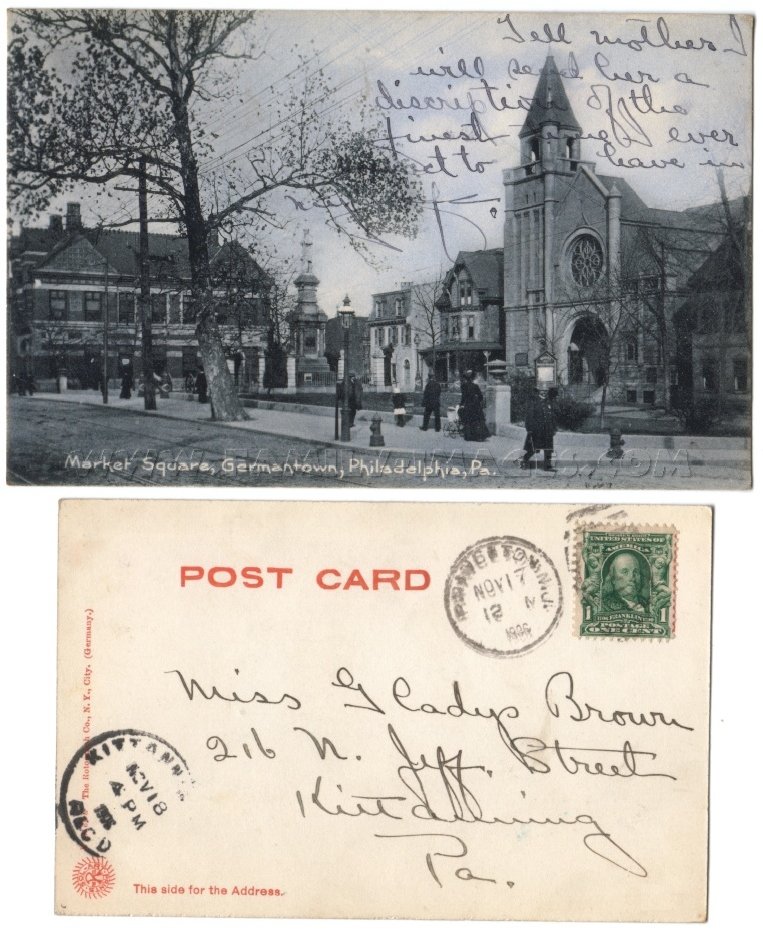 Tell mother I
will send her a
discription of the
finest ever
to have in
K.
Market Square, Germantown, Philadelphia, Pa.
POST CARD
PRINCETON, N.J.
NOV 17
12 M
1906
UNITED STATES OF
AMERICA
1 1
POSTAGE
ONE CENT
Miss Gladys Brown
216 N. Jeff. Street
Kittanning
Pa.
KITTANNING
NOV 18
4 PM
REC'D
The Rotograph Co., N. Y., City. (Germany.)
This side for the Address.